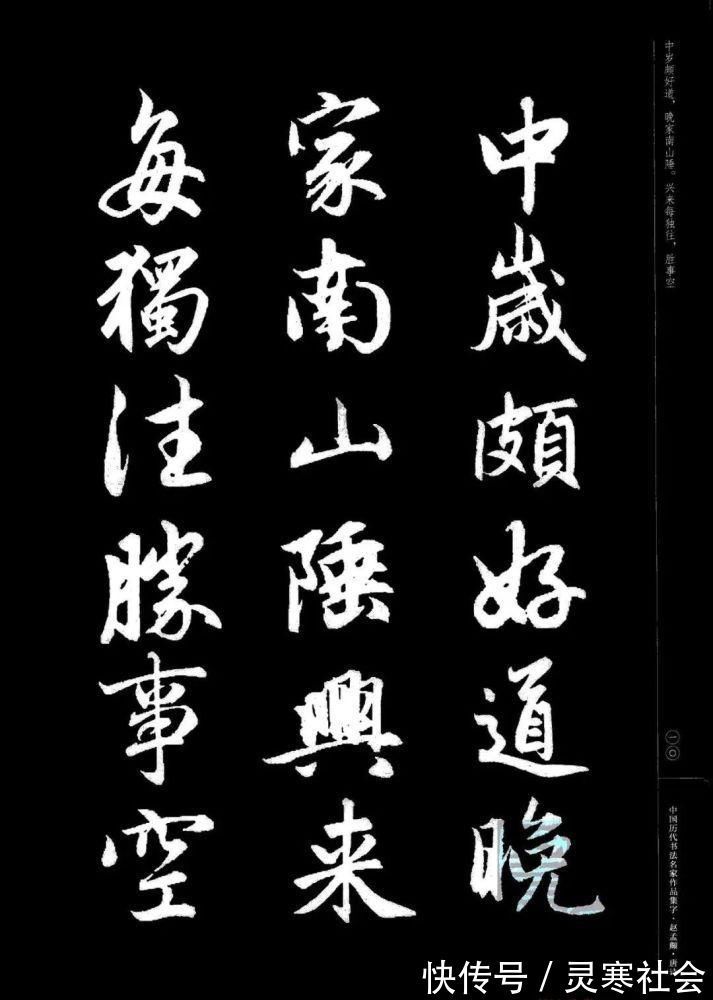 中岁颇好道，晚家南山陲。兴来每独往，胜事空
中歲頗好道晚
家南山陲興来
每獨往勝事空
一〇
中国历代书法名家作品集字·赵孟頫·唐诗
快传号／灵寒社会